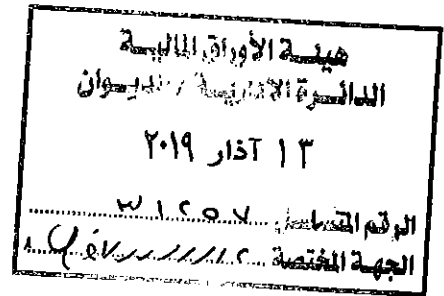 هيئة الأوراق المالية
الدائرة الادارية / الديوان
١٣ آذار ٢٠١٩
الرقم المتسلسل
الجهة المختصة